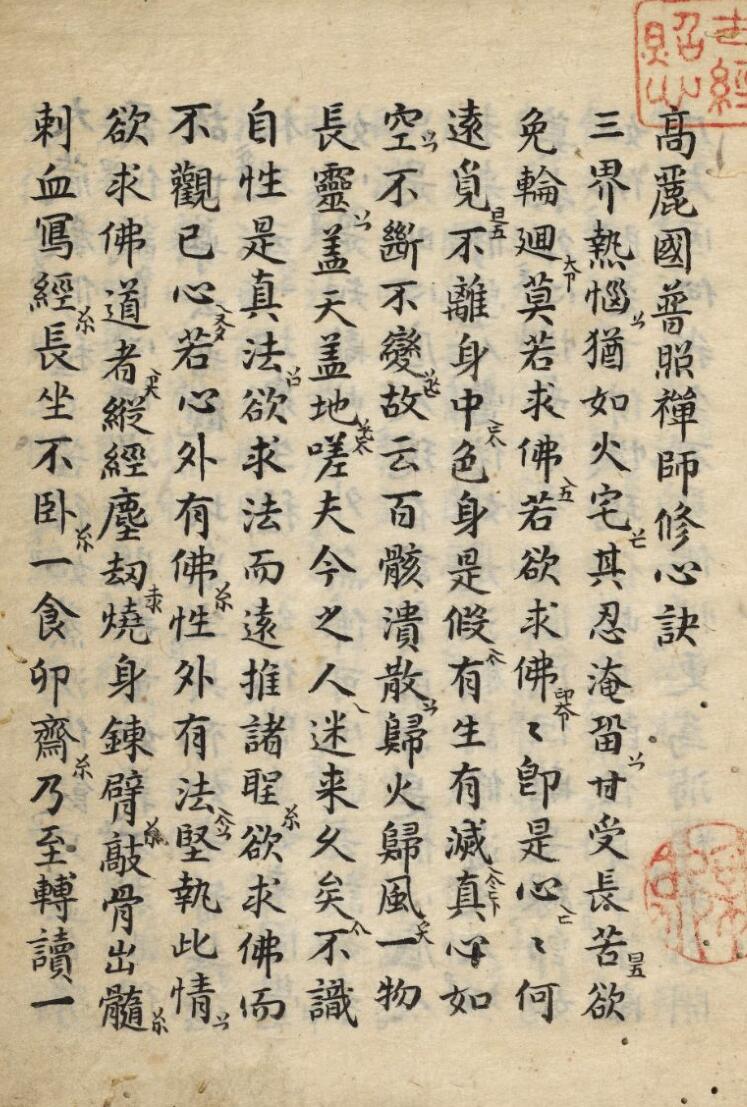 高麗國普照禪師修心訣
三界熱惱猶如火宅其忍淹留甘受長苦欲
免輪廻莫若求佛若欲求佛〻卽是心〻何
遠覓不離身中色身是假有生有滅真心如
空不斷不變故云百骸潰散歸火歸風一物
長靈盖天盖地嗟夫今之人迷来久矣不識
自性是真法欲求法而遠推諸聖欲求佛而
不觀已心若心外有佛性外有法堅執此情
欲求佛道者縱經塵刼燒身鍊臂敲骨出髓
刺血寫經長坐不卧一食卯齋乃至轉讀一